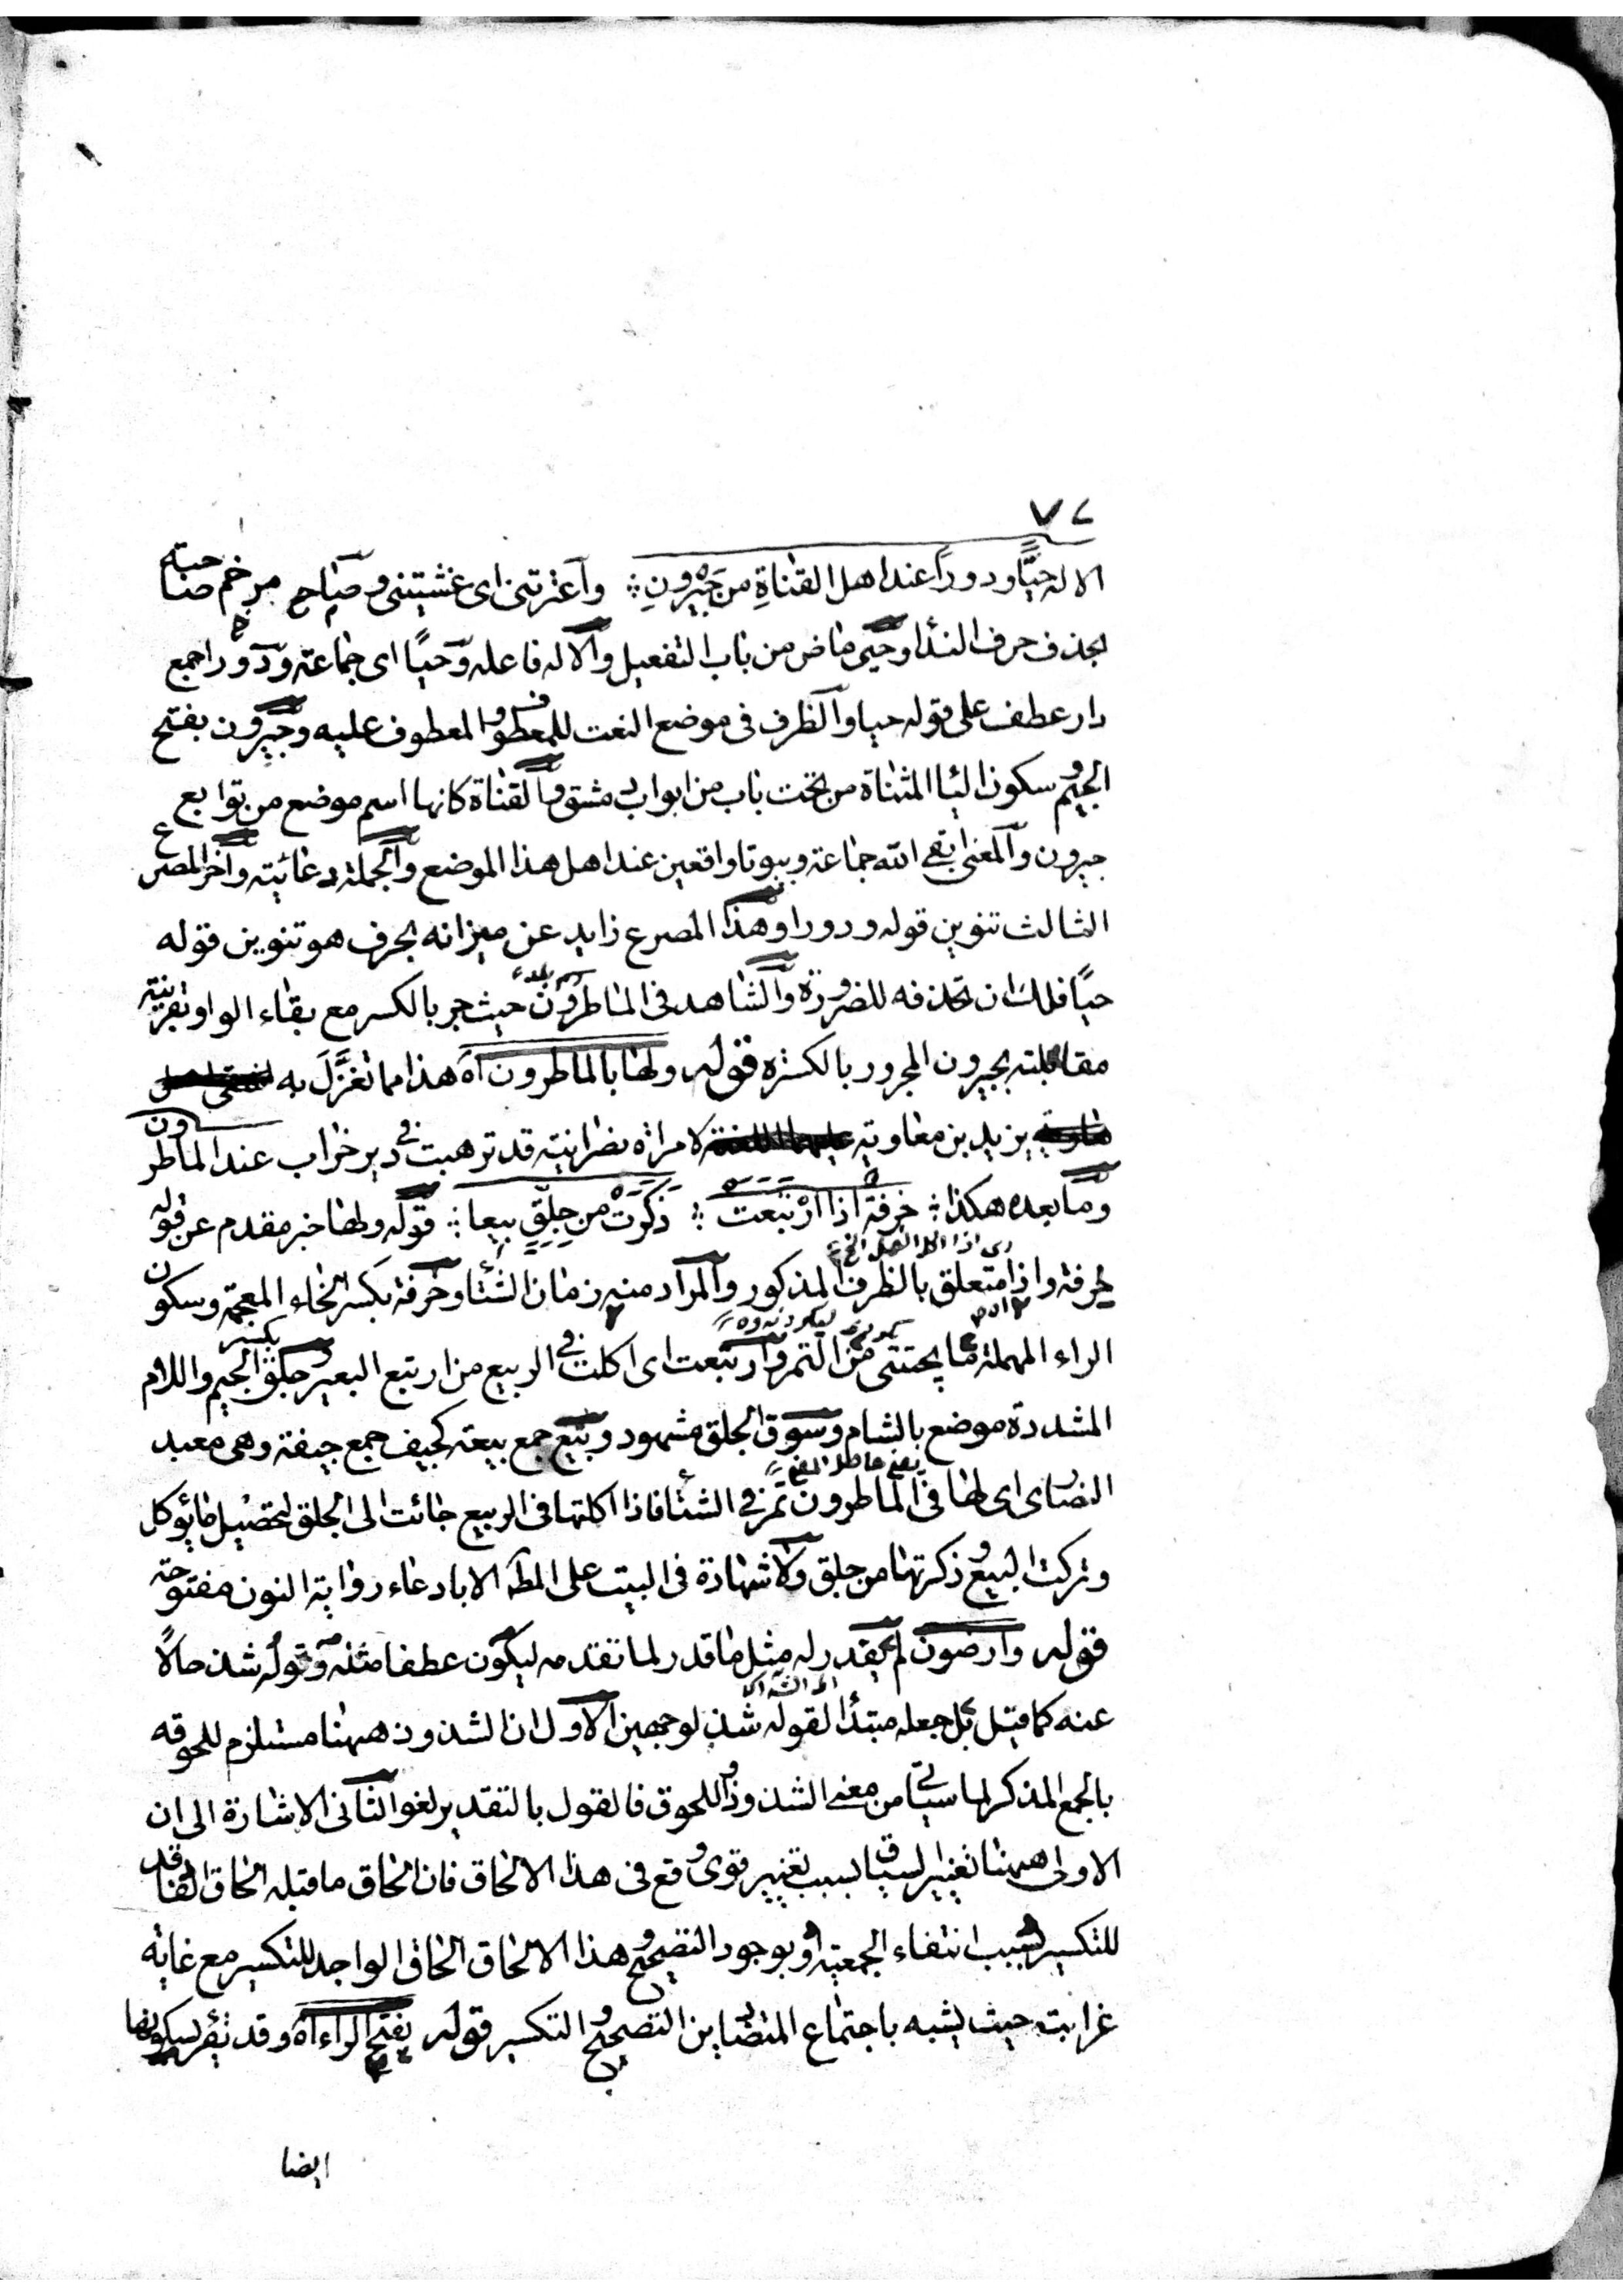 ٧٢
الاله حيّا ودورًا عند اهل القناةِ من جَيْرونِ ؞ وآعترتنى اى غشيتنى وصاح مرخم صاحبه
بحذف حرف الندا وحيّى ماض من باب التفعيل والآله فاعله وحيًا اى جماعته ودور اجمع
دار عطف على قوله حيا والظرف فى موضع النعت للمعطوف والمعطوف عليه وجيرون بفتح
الجيم وسكون اليا المثناة من تحت باب من ابواب دمشق والقناة كانها اسم موضع من توابع
جيرون والمعنى ابقى الله جماعته وبيوتا واقعين عند اهل هذا الموضع والجملة دعائيته وآخر المصرع
الثالث تنوين قوله ودورا وهذا المصرع زايد عن ميزانه بحرف هو تنوين قوله
حيًا فلك ان تحذفه للضرورة والشاهد فى الماطرون حيث جر بالكسر مع بقاء الواو بقرينته
مقابلته بجيرون المجرور بالكسره قوله ولها بالماطرون آه هذا مما تغزَّلَ به
يزيد بن معاويته لامراة نصرانيته قد ترهبت فى دير خراب عند الماطرون
وما بعده هكذا ؞ خرفة اذا ارْتبعت ؞ ذكرَت من جِلِّقٍ بيعا ؞ قوله ولها خبر مقدم عن قوله
خرفة واذا متعلق بالظرف المذكور والمراد منه زمان الشتا وخرفة بكسر الخاء المعجمة وسكون
الراء المهملة ما يجتنى من التمر وارتبعت اى اكلت فى الربيع من ارتبع البعير وجلق بكسر الجيم واللام
المشددة موضع بالشام وسوق الجلق مشهود وبيع جمع بيعته كجيف جمع جيفة وهى معبد
النصارى اى لها فى الماطرون تمر فى الشتا فاذا اكلتها فى الربيع جائت الى الجلق لتحصيل ما يؤكل
وتركت البيع وذكرتها من جلق ولا شهادة فى البيت على المط الا بادعاء رواية النون مفتوحة
قوله وارضون لم يقدر له مثل ما قدر لما تقدمه ليكون عطفا مثله وقوله شذ حالًا
عنه كما قيل بل جعله مبتدأ لقوله شذ لوجهين الاول ان الشذوذ ههنا مستلزم للحوقه
بالجمع المذكر لما سيأتى من معنى الشذوذ واللحوق فالقول بالتقدير لغو الثانى الاشارة الى ان
الاولى ههنا تغيير السياق بسبب تغيير قوى وقع فى هذا الالحاق فان الحاق ما قبله الحاق الفاقد
للتكسير بسبب انتفاء الجمعية او بوجود التصحيح وهذا الالحاق الحاق الواجد للتكسير مع غاية
غرابته حيث يشبه باجتماع المتضاين التصحيح والتكسير قوله بفتح الراء آه وقد يقر بسكونها
ايضا